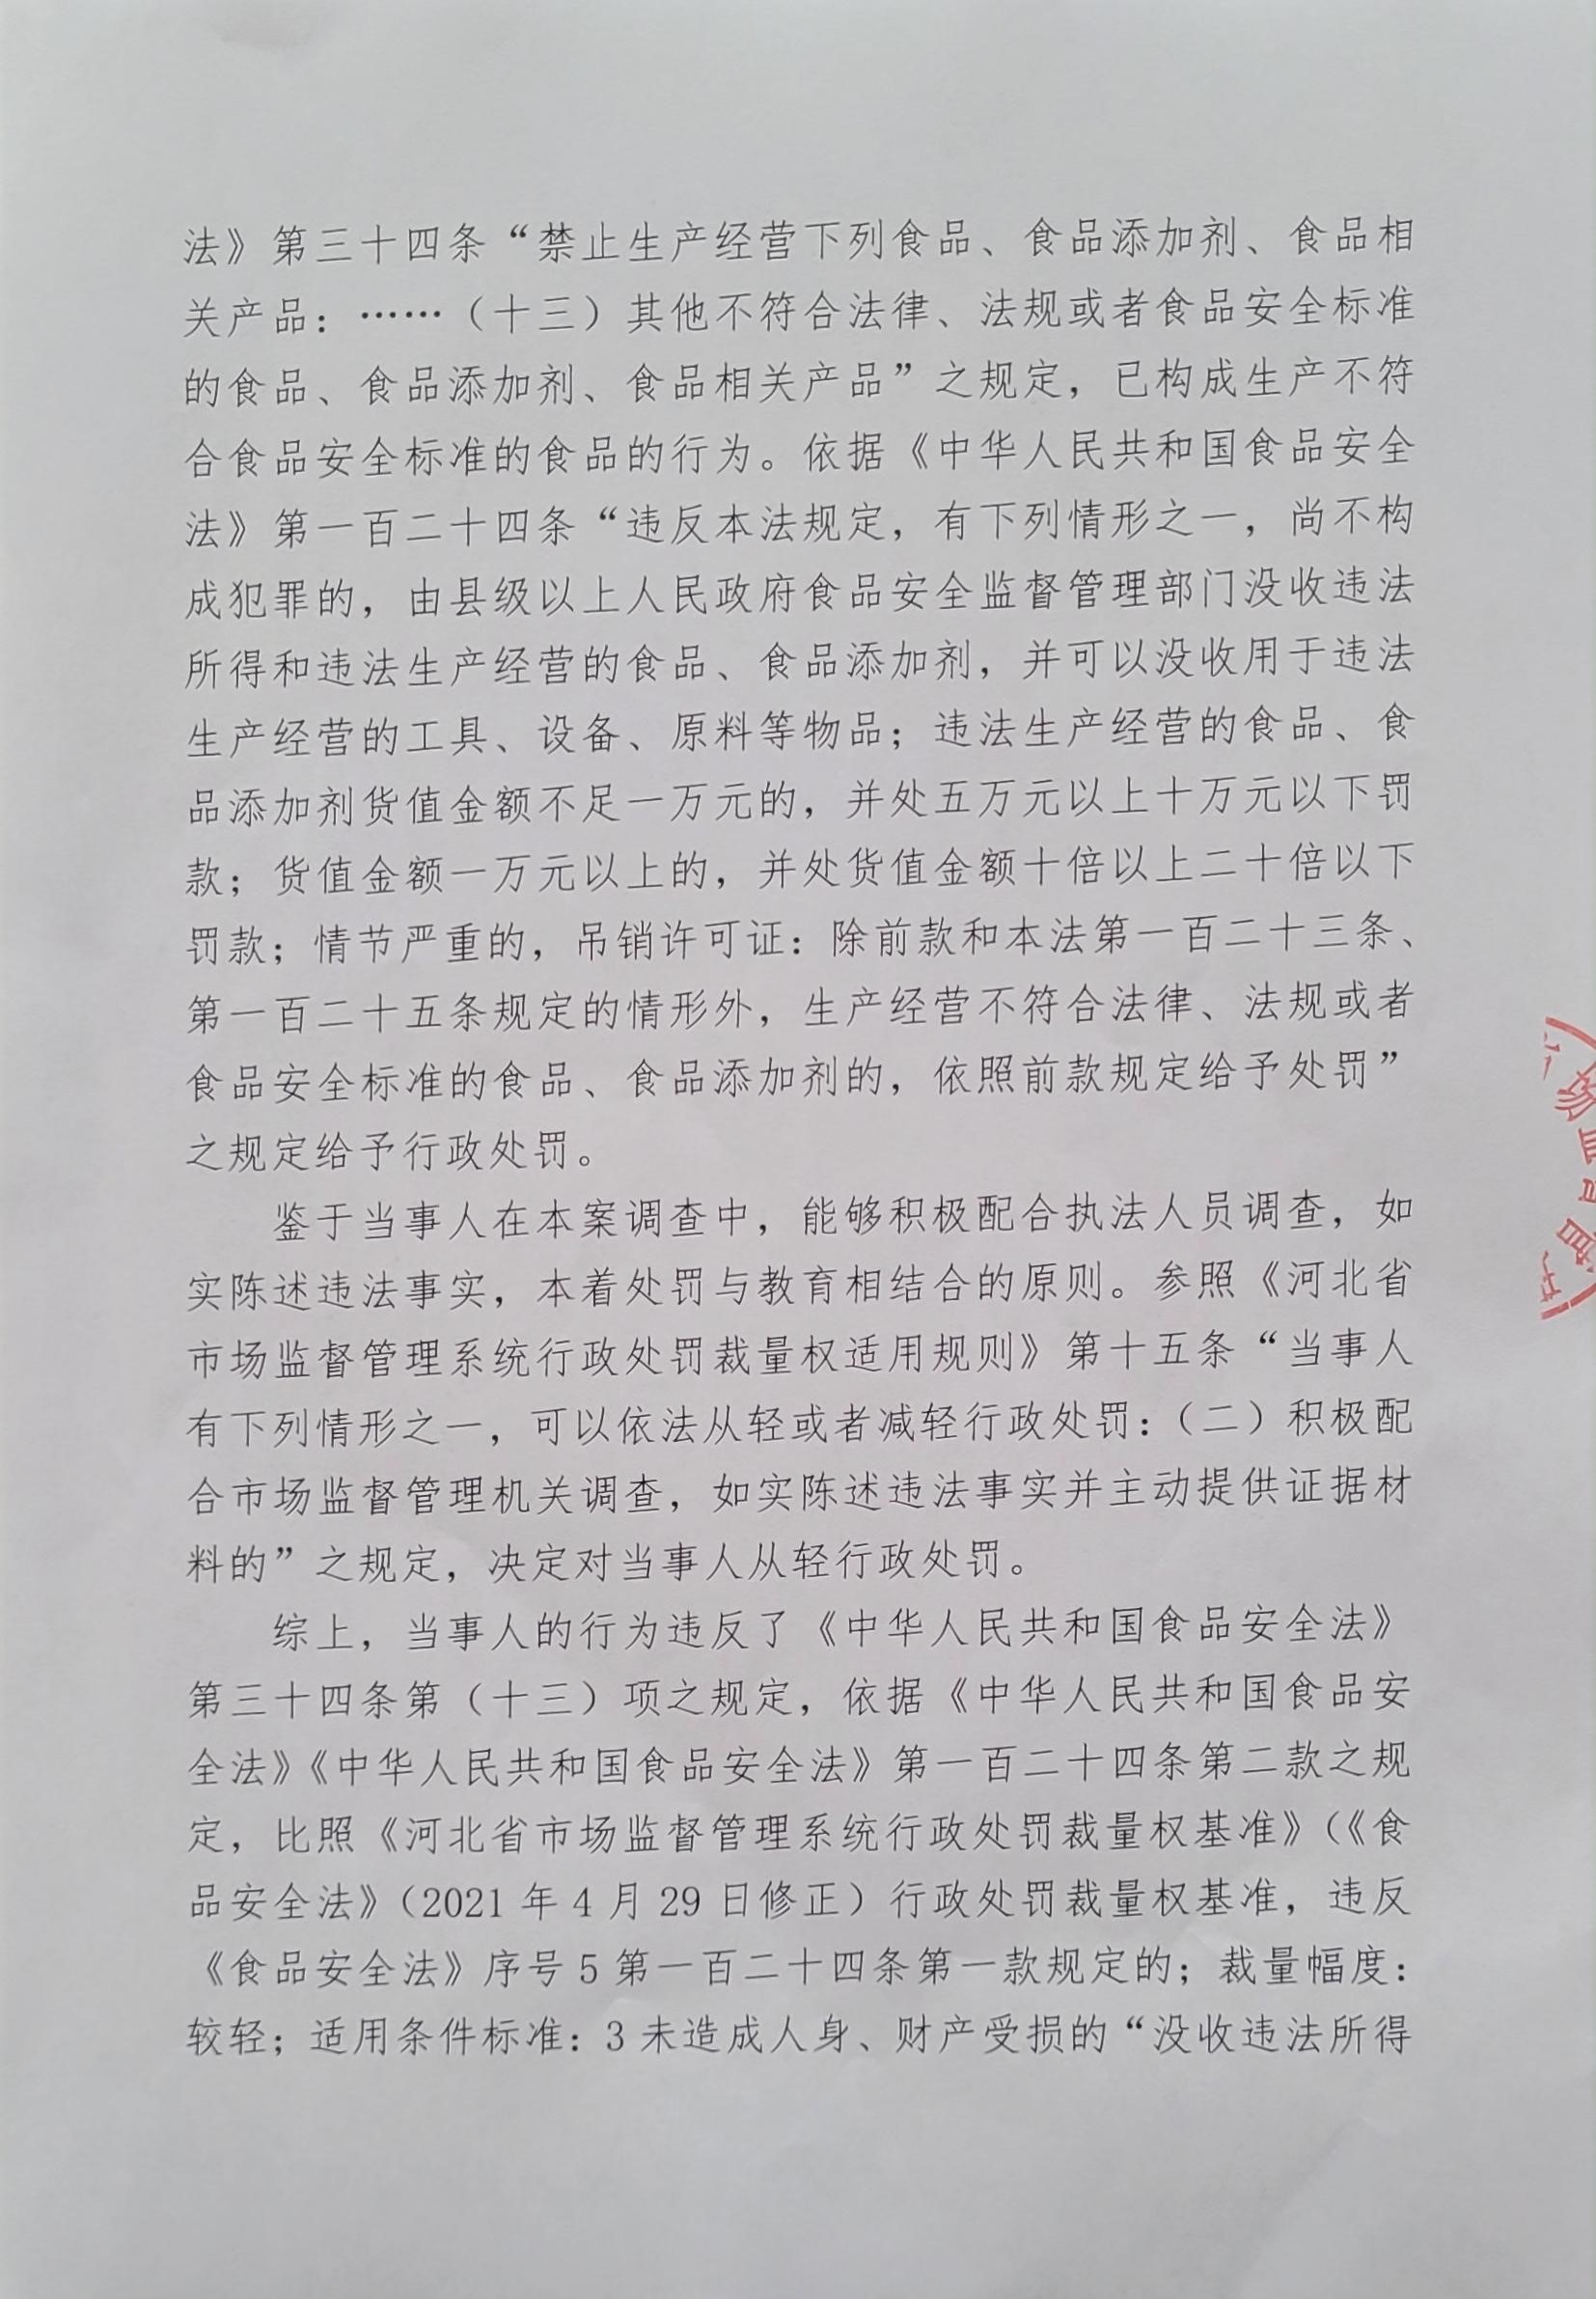 法》第三十四条“禁止生产经营下列食品、食品添加剂、食品相
关产品：……（十三）其他不符合法律、法规或者食品安全标准
的食品、食品添加剂、食品相关产品”之规定，已构成生产不符
合食品安全标准的食品的行为。依据《中华人民共和国食品安全
法》第一百二十四条“违反本法规定，有下列情形之一，尚不构
成犯罪的，由县级以上人民政府食品安全监督管理部门没收违法
所得和违法生产经营的食品、食品添加剂，并可以没收用于违法
生产经营的工具、设备、原料等物品；违法生产经营的食品、食
品添加剂货值金额不足一万元的，并处五万元以上十万元以下罚
款；货值金额一万元以上的，并处货值金额十倍以上二十倍以下
罚款；情节严重的，吊销许可证：除前款和本法第一百二十三条、
第一百二十五条规定的情形外，生产经营不符合法律、法规或者
食品安全标准的食品、食品添加剂的，依照前款规定给予处罚”
之规定给予行政处罚。
鉴于当事人在本案调查中，能够积极配合执法人员调查，如
实陈述违法事实，本着处罚与教育相结合的原则。参照《河北省
市场监督管理系统行政处罚裁量权适用规则》第十五条“当事人
有下列情形之一，可以依法从轻或者减轻行政处罚：（二）积极配
合市场监督管理机关调查，如实陈述违法事实并主动提供证据材
料的”之规定，决定对当事人从轻行政处罚。
综上，当事人的行为违反了《中华人民共和国食品安全法》
第三十四条第（十三）项之规定，依据《中华人民共和国食品安
全法》《中华人民共和国食品安全法》第一百二十四条第二款之规
定，比照《河北省市场监督管理系统行政处罚裁量权基准》（《食
品安全法》（2021年4月29日修正）行政处罚裁量权基准，违反
《食品安全法》序号5第一百二十四条第一款规定的；裁量幅度：
较轻；适用条件标准：3未造成人身、财产受损的“没收违法所得